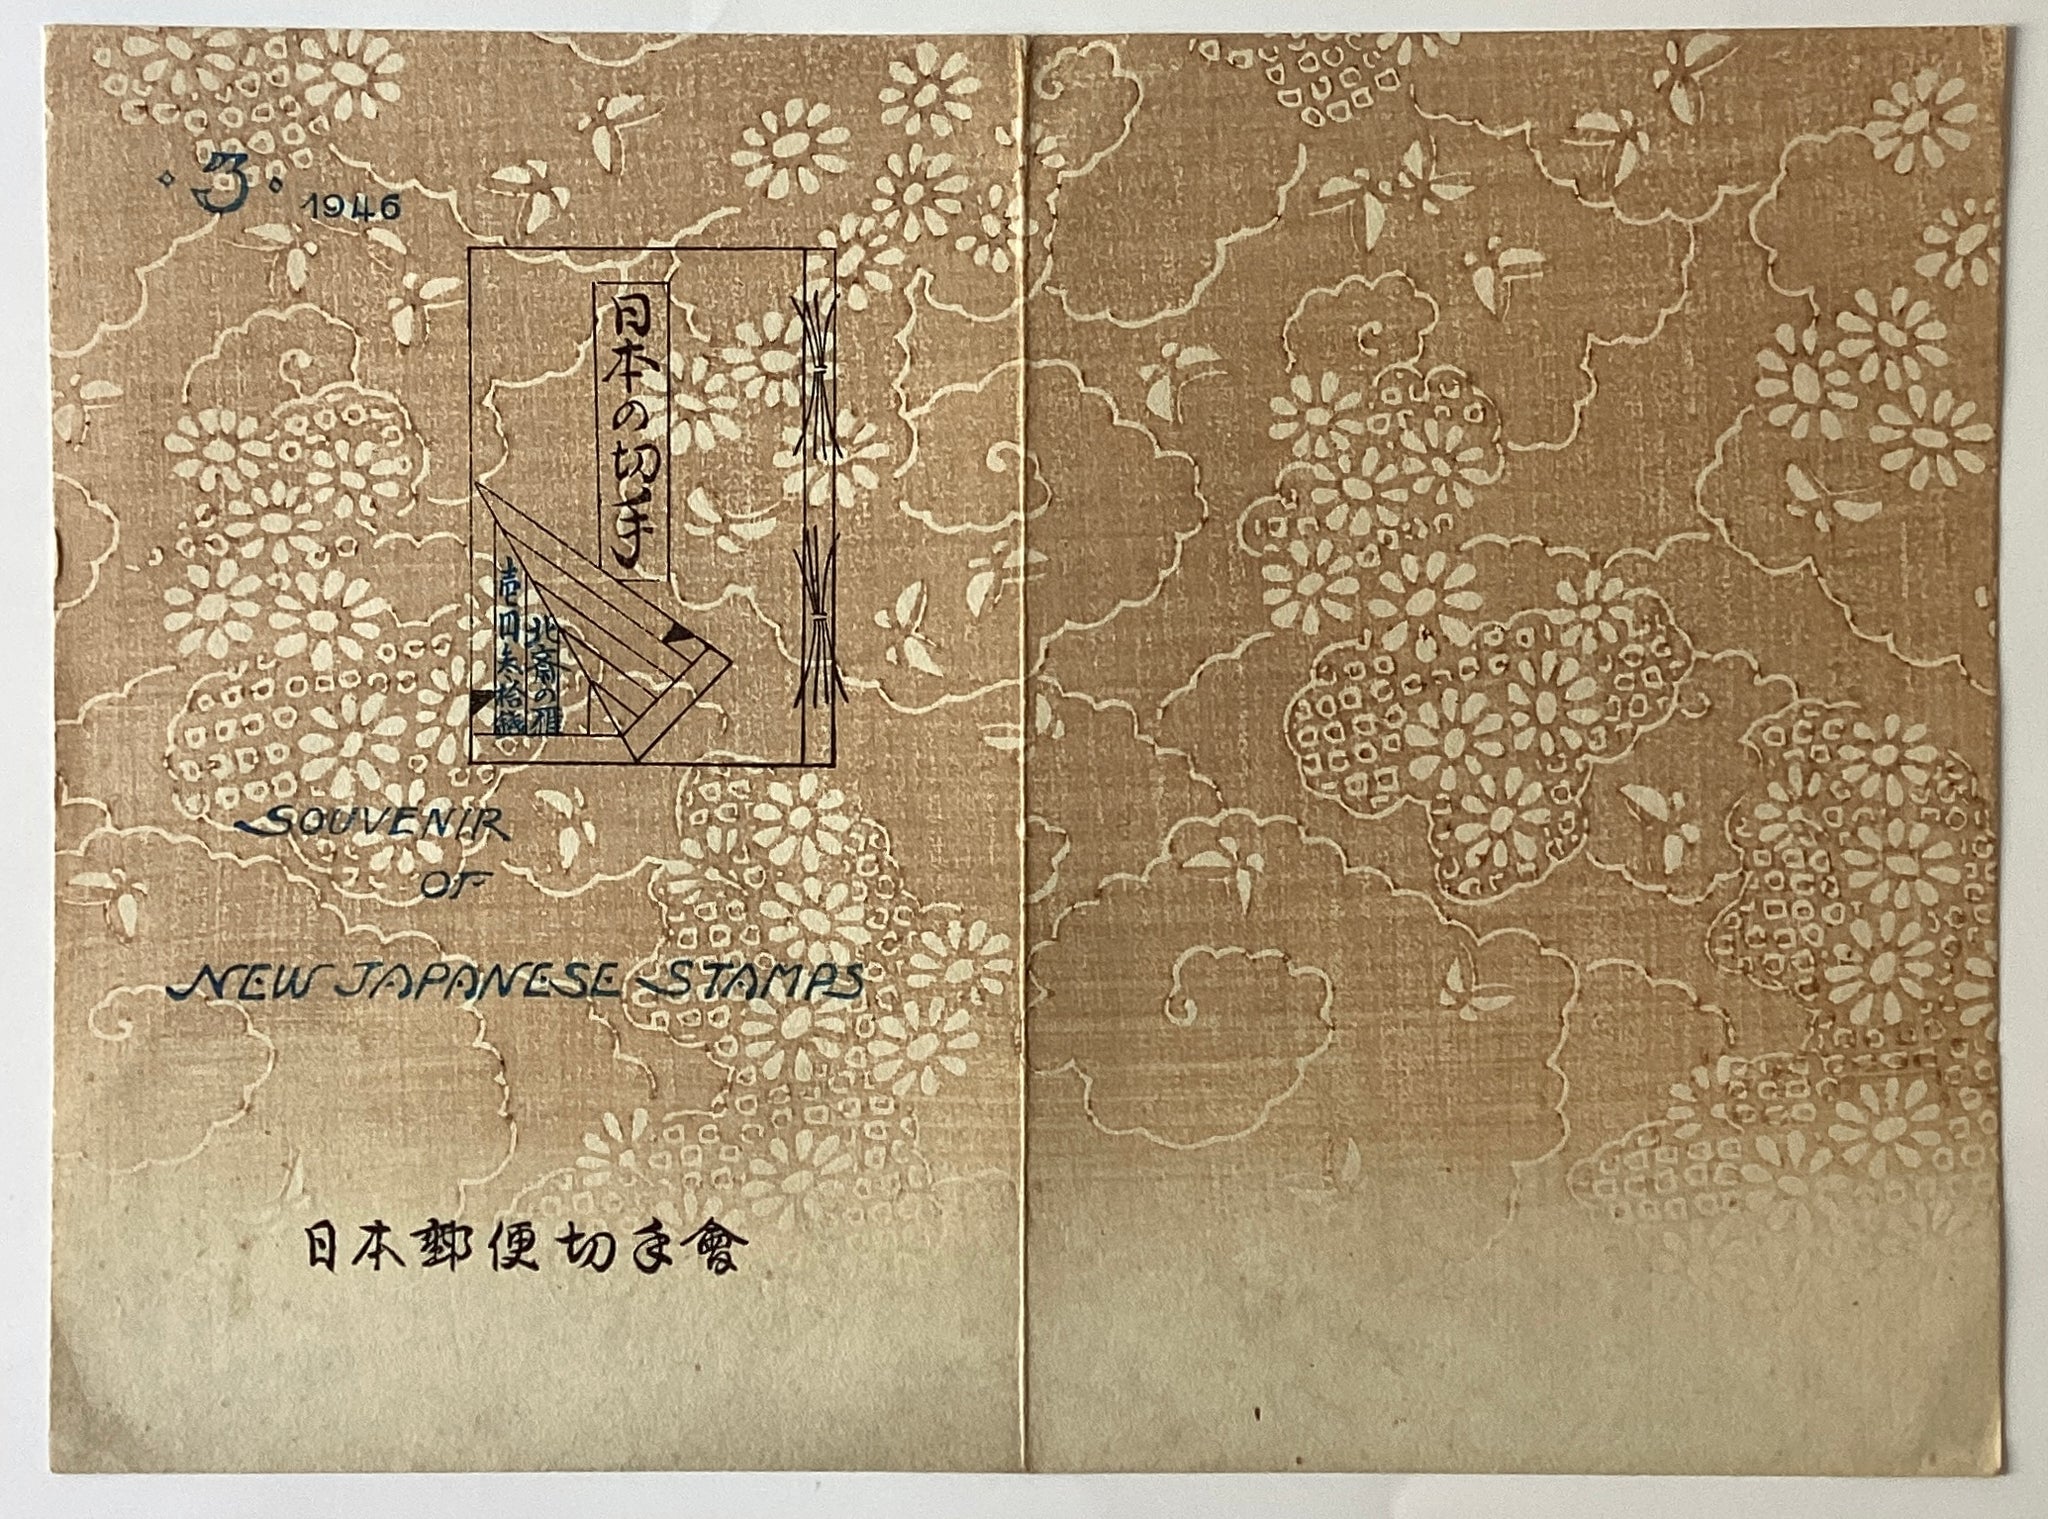 3 1946
日本の切手
北斎の雁
壱円参拾銭
SOUVENIR
OF
NEW JAPANESE STAMPS
日本郵便切手會